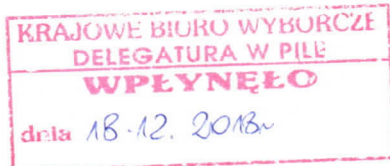 KRAJOWE BIURO WYBORCZE
DELEGATURA W PILE
WPŁYNĘŁO
dnia 18.12. 2018r